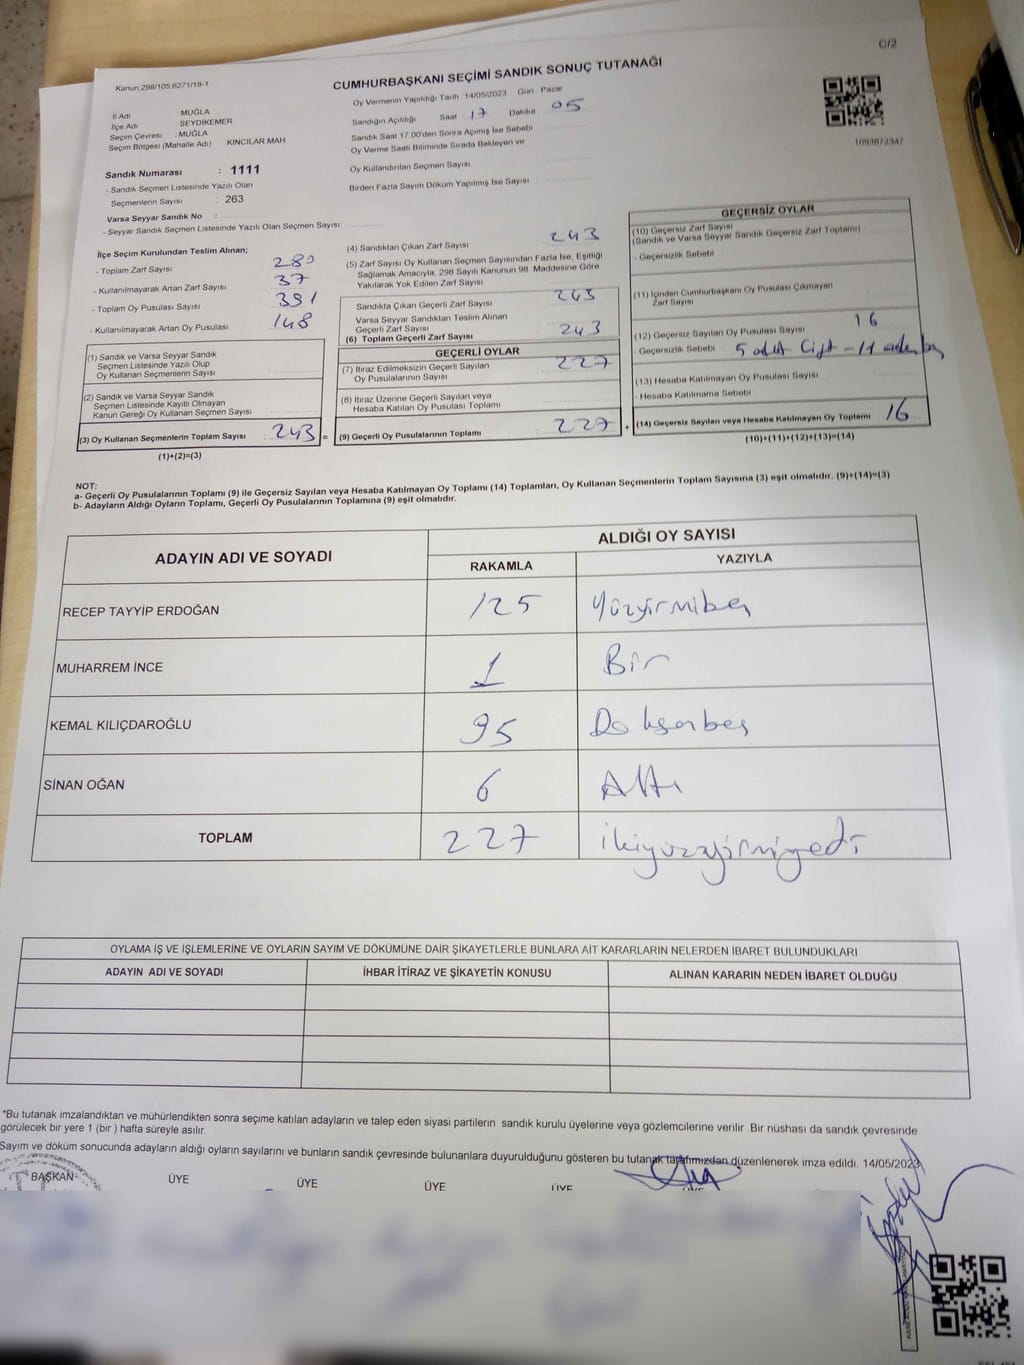 C/2
Kanun,298/105;6271/18-1
CUMHURBAŞKANI SEÇİMİ SANDIK SONUÇ TUTANAĞI
Oy Vermenin Yapıldığı Tarih 14/05/2023 Gün Pazar
İl Adı : MUĞLA
İlçe Adı SEYDİKEMER
Seçim Çevresi : MUĞLA
Seçim Bölgesi (Mahalle Adı) KINCILAR MAH
Sandığın Açıldığı Saat 17 Dakika 05
Sandık Saat 17:00'den Sonra Açımış İse Sebebi
Oy Verme Saati Bitiminde Sırada Bekleyen ve
Oy Kullandırılan Seçmen Sayısı
Birden Fazla Sayım Döküm Yapılmış İse Sayısı
1093872347
Sandık Numarası : 1111
- Sandık Seçmen Listesinde Yazılı Olan
Seçmenlerin Sayısı : 263
Varsa Seyyar Sandık No :
- Seyyar Sandık Seçmen Listesinde Yazılı Olan Seçmen Sayısı:
İlçe Seçim Kurulundan Teslim Alınan;
- Toplam Zarf Sayısı 280
- Kullanılmayarak Artan Zarf Sayısı 37
- Toplam Oy Pusulası Sayısı 391
- Kullanılmayarak Artan Oy Pusulası 148
(1) Sandık ve Varsa Seyyar Sandık
Seçmen Listesinde Yazılı Olup
Oy Kullanan Seçmenlerin Sayısı
(2) Sandık ve Varsa Seyyar Sandık
Seçmen Listesinde Kayıtlı Olmayan
Kanun Gereği Oy Kullanan Seçmen Sayısı
(3) Oy Kullanan Seçmenlerin Toplam Sayısı : 243 =
(1)+(2)=(3)
(4) Sandıktan Çıkan Zarf Sayısı 243
(5) Zarf Sayısı Oy Kullanan Seçmen Sayısından Fazla İse, Eşitliği
Sağlamak Amacıyla, 298 Sayılı Kanunun 98. Maddesine Göre
Yakılarak Yok Edilen Zarf Sayısı
Sandıkta Çıkan Geçerli Zarf Sayısı 243
Varsa Seyyar Sandıktan Teslim Alınan
Geçerli Zarf Sayısı
(6) Toplam Geçerli Zarf Sayısı 243
GEÇERLİ OYLAR
(7) İtiraz Edilmeksizin Geçerli Sayılan
Oy Pusulasının Sayısı 227
(8) İtiraz Üzerine Geçerli Sayılan veya
Hesaba Katılan Oy Pusulası Toplamı
(9) Geçerli Oy Pusulalarının Toplamı 227 +
GEÇERSİZ OYLAR
(10) Geçersiz Zarf Sayısı
(Sandık ve Varsa Seyyar Sandık Geçersiz Zarf Toplamı)
- Geçersizlik Sebebi
(11) İçinden Cumhurbaşkanı Oy Pusulası Çıkmayan
Zarf Sayısı
(12) Geçersiz Sayılan Oy Pusulası Sayısı 16
- Geçersizlik Sebebi 5 adet Çift - 11 adet boş
(13) Hesaba Katılmayan Oy Pusulası Sayısı
- Hesaba Katılmama Sebebi
(14) Geçersiz Sayılan veya Hesaba Katılmayan Oy Toplamı 16
(10)+(11)+(12)+(13)=(14)
NOT:
a- Geçerli Oy Pusulalarının Toplamı (9) ile Geçersiz Sayılan veya Hesaba Katılmayan Oy Toplamı (14) Toplamları, Oy Kullanan Seçmenlerin Toplam Sayısına (3) eşit olmalıdır. (9)+(14)=(3)
b- Adayların Aldığı Oyların Toplamı, Geçerli Oy Pusulalarının Toplamına (9) eşit olmalıdır.
ADAYIN ADI VE SOYADI
ALDIĞI OY SAYISI
RAKAMLA YAZIYLA
RECEP TAYYİP ERDOĞAN 125 Yüzyirmibeş
MUHARREM İNCE 1 Bir
KEMAL KILIÇDAROĞLU 95 Doksanbeş
SİNAN OĞAN 6 Altı
TOPLAM 227 ikiyüzyirmiyedi
OYLAMA İŞ VE İŞLEMLERİNE VE OYLARIN SAYIM VE DÖKÜMÜNE DAİR ŞİKAYETLERLE BUNLARA AİT KARARLARIN NELERDEN İBARET BULUNDUKLARI
ADAYIN ADI VE SOYADI İHBAR İTİRAZ VE ŞİKAYETİN KONUSU ALINAN KARARIN NEDEN İBARET OLDUĞU
*Bu tutanak imzalandıktan ve mühürlendikten sonra seçime katılan adayların ve talep eden siyasi partilerin sandık kurulu üyelerine veya gözlemcilerine verilir. Bir nüshası da sandık çevresinde
görülecek bir yere 1 (bir) hafta süreyle asılır.
Sayım ve döküm sonucunda adayların aldığı oyların sayılarını ve bunların sandık çevresinde bulunanlara duyurulduğunu gösteren bu tutanak tarafımızdan düzenlenerek imza edildi. 14/05/2023
BAŞKAN ÜYE ÜYE ÜYE ÜYE